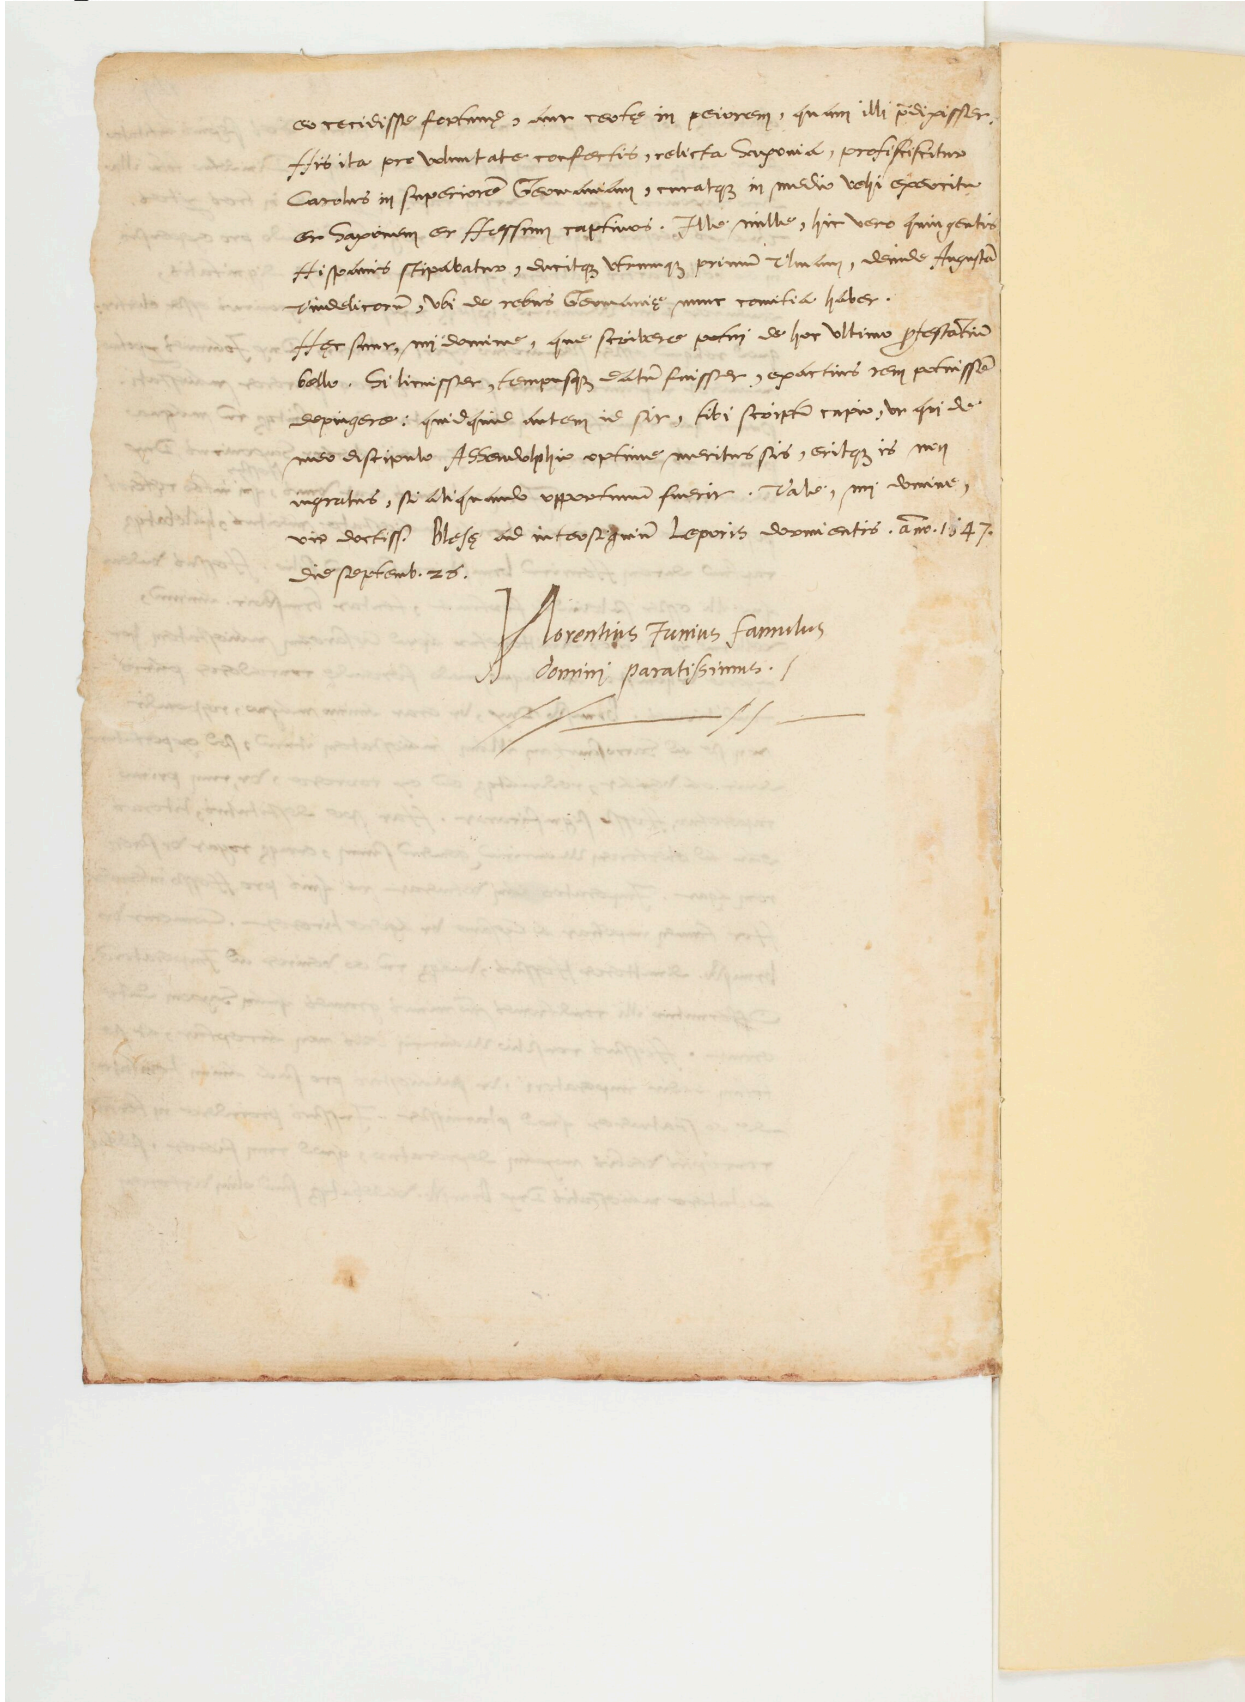 eo cecidisse fortunę, aut certę in peiorem, quam illi p̄dixisset.
His ita pro voluntate confectis, relicta Saxonia, proficiscitur
Carolus in superiorē Germaniam, curatq; in medio vehi exercitu
et Saxonem et Hessum captivos. Ille mille, hic vero quingentis
Hispanis stipabatur, ducitq; utrumq; primū Vlmam, deinde Augustā
Vindelicorū, vbi de rebus Germanię nunc comitia habet.
Hęc sunt, mi domine, que scribere potui de hoc vltimo ꝓtestantiū
bello. Si licuisset, tempusq; datū fuisset, exactius rem potuissē
depingere: quidquid autem id sit, tibi scriptū cupio, vt qui de
meo discipulo Assendolphio optime meritus sis, eritq; is non
ingratus, si aliquando opportunū fuerit. Vale, mi domine,
vir doctiss. Blęsę ad intersigniū Leporis dormientis. āno. 1547.
die septemb. 26.
Florentius Junius famulus
domini paratissimus.